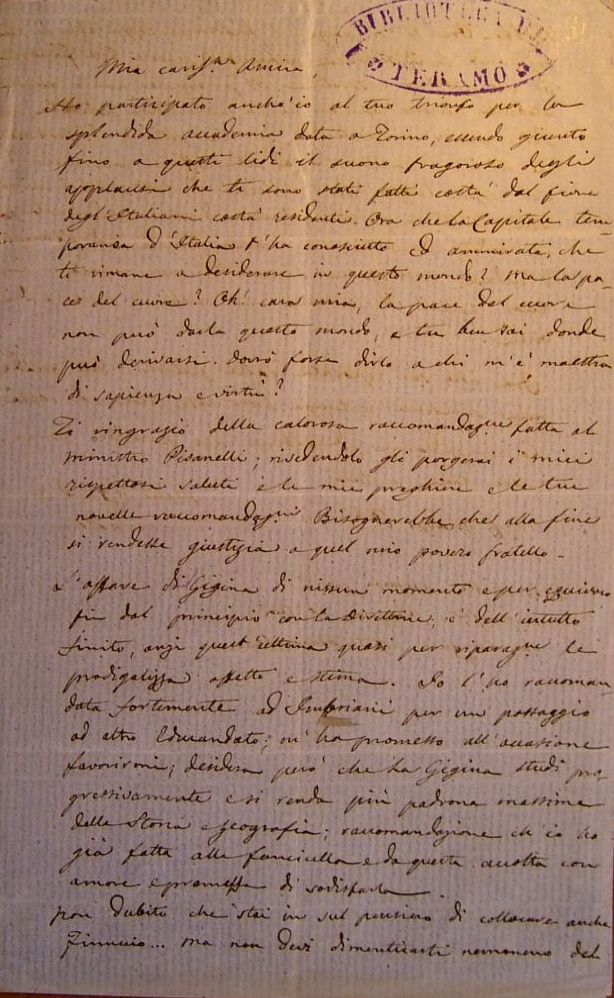 BIBLIOTECA
TERAMO
Mia cariss.ma Amica,
Ho participato anch'io al tuo trionfo per la
splendida accademia data a Torino, essendo giunto
fino a questi lidi il suono fragoroso degli
applausi che ti sono stati fatti costà dal fiore
degl'Italiani costà residenti. Ora che la Capitale tem-
poranea d'Italia t'ha conosciuto ed ammirata, che
ti rimane a desiderare in questo mondo? Ma la pa-
ce del cuore? Oh! cara mia, la pace del cuore
non può darla questo mondo, e tu ben sai donde
può derivarsi. Dovrò forse dirlo a chi m'è maestra
di sapienza e virtù?
Ti ringrazio della calorosa raccomandaz.ne fatta al
ministro Pisanelli; risedendolo gli porgerai i miei
rispettosi saluti e le mie preghiere e le tue
novelle raccomandaz.ni Bisognerebbe che alla fine
si rendesse giustizia a quel mio povero fratello -
L'affare di Gigina di nissun momento e per equivoco
fin dal principio con la Direttrice, è dell'intutto
finito, anzi quest'ultima quasi per riparaz.ne le
prodigalizza affetto e stima. Io l'ho raccoman
data fortemente ad Imbriani per un passaggio
ad altro Educandato; m'ha promesso all'occasione
favorirmi; desidera però che la Gigina studi pro-
gressivamente e si renda più padrona massime
della Storia e Geografia; raccomandazione ch'io ho
già fatta alla fanciulla e da questa accolta con
amore e promessa di sodisfarla
Non dubito che stai in sul pensiero di collocare anche
... ma non devi dimenticarti nemmeno del